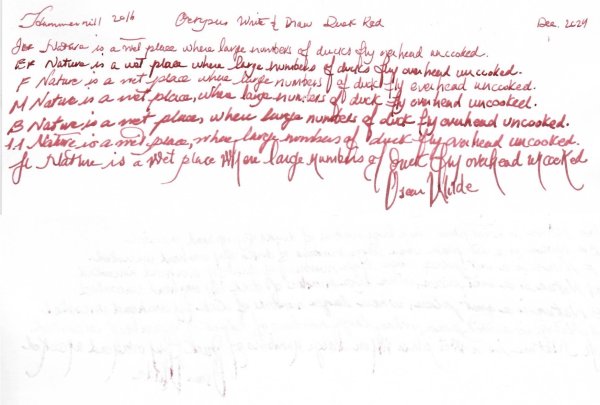 Hammermill 2016 Octopus Write & Draw Duck Red Dec. 2024
Jef Nature is a wet place where large numbers of ducks fly overhead uncooked.
EF Nature is a wet place where large numbers of ducks fly overhead uncooked.
F Nature is a wet place where large numbers of duck fly overhead uncooked.
M Nature is a wet place, where large numbers of duck fly overhead uncooked.
B Nature is a wet place, where large numbers of duck fly overhead uncooked.
1.1 Nature is a wet place, where large numbers of duck fly overhead uncooked.
fl Nature is a wet place where large numbers of duck fly overhead uncooked
Oscar Wilde